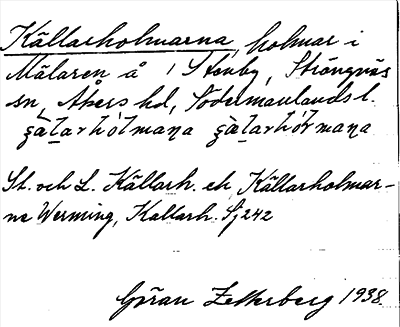 Källarholmarna, holmar i
Mälaren å Stenby, Strängnäs
sn, Åkers hd, Södermanlands l.
St. och L. Källarh. ek, Källarholmar-
na Werming, Kallarh. Sj 242
Göran Zetterberg 1938.